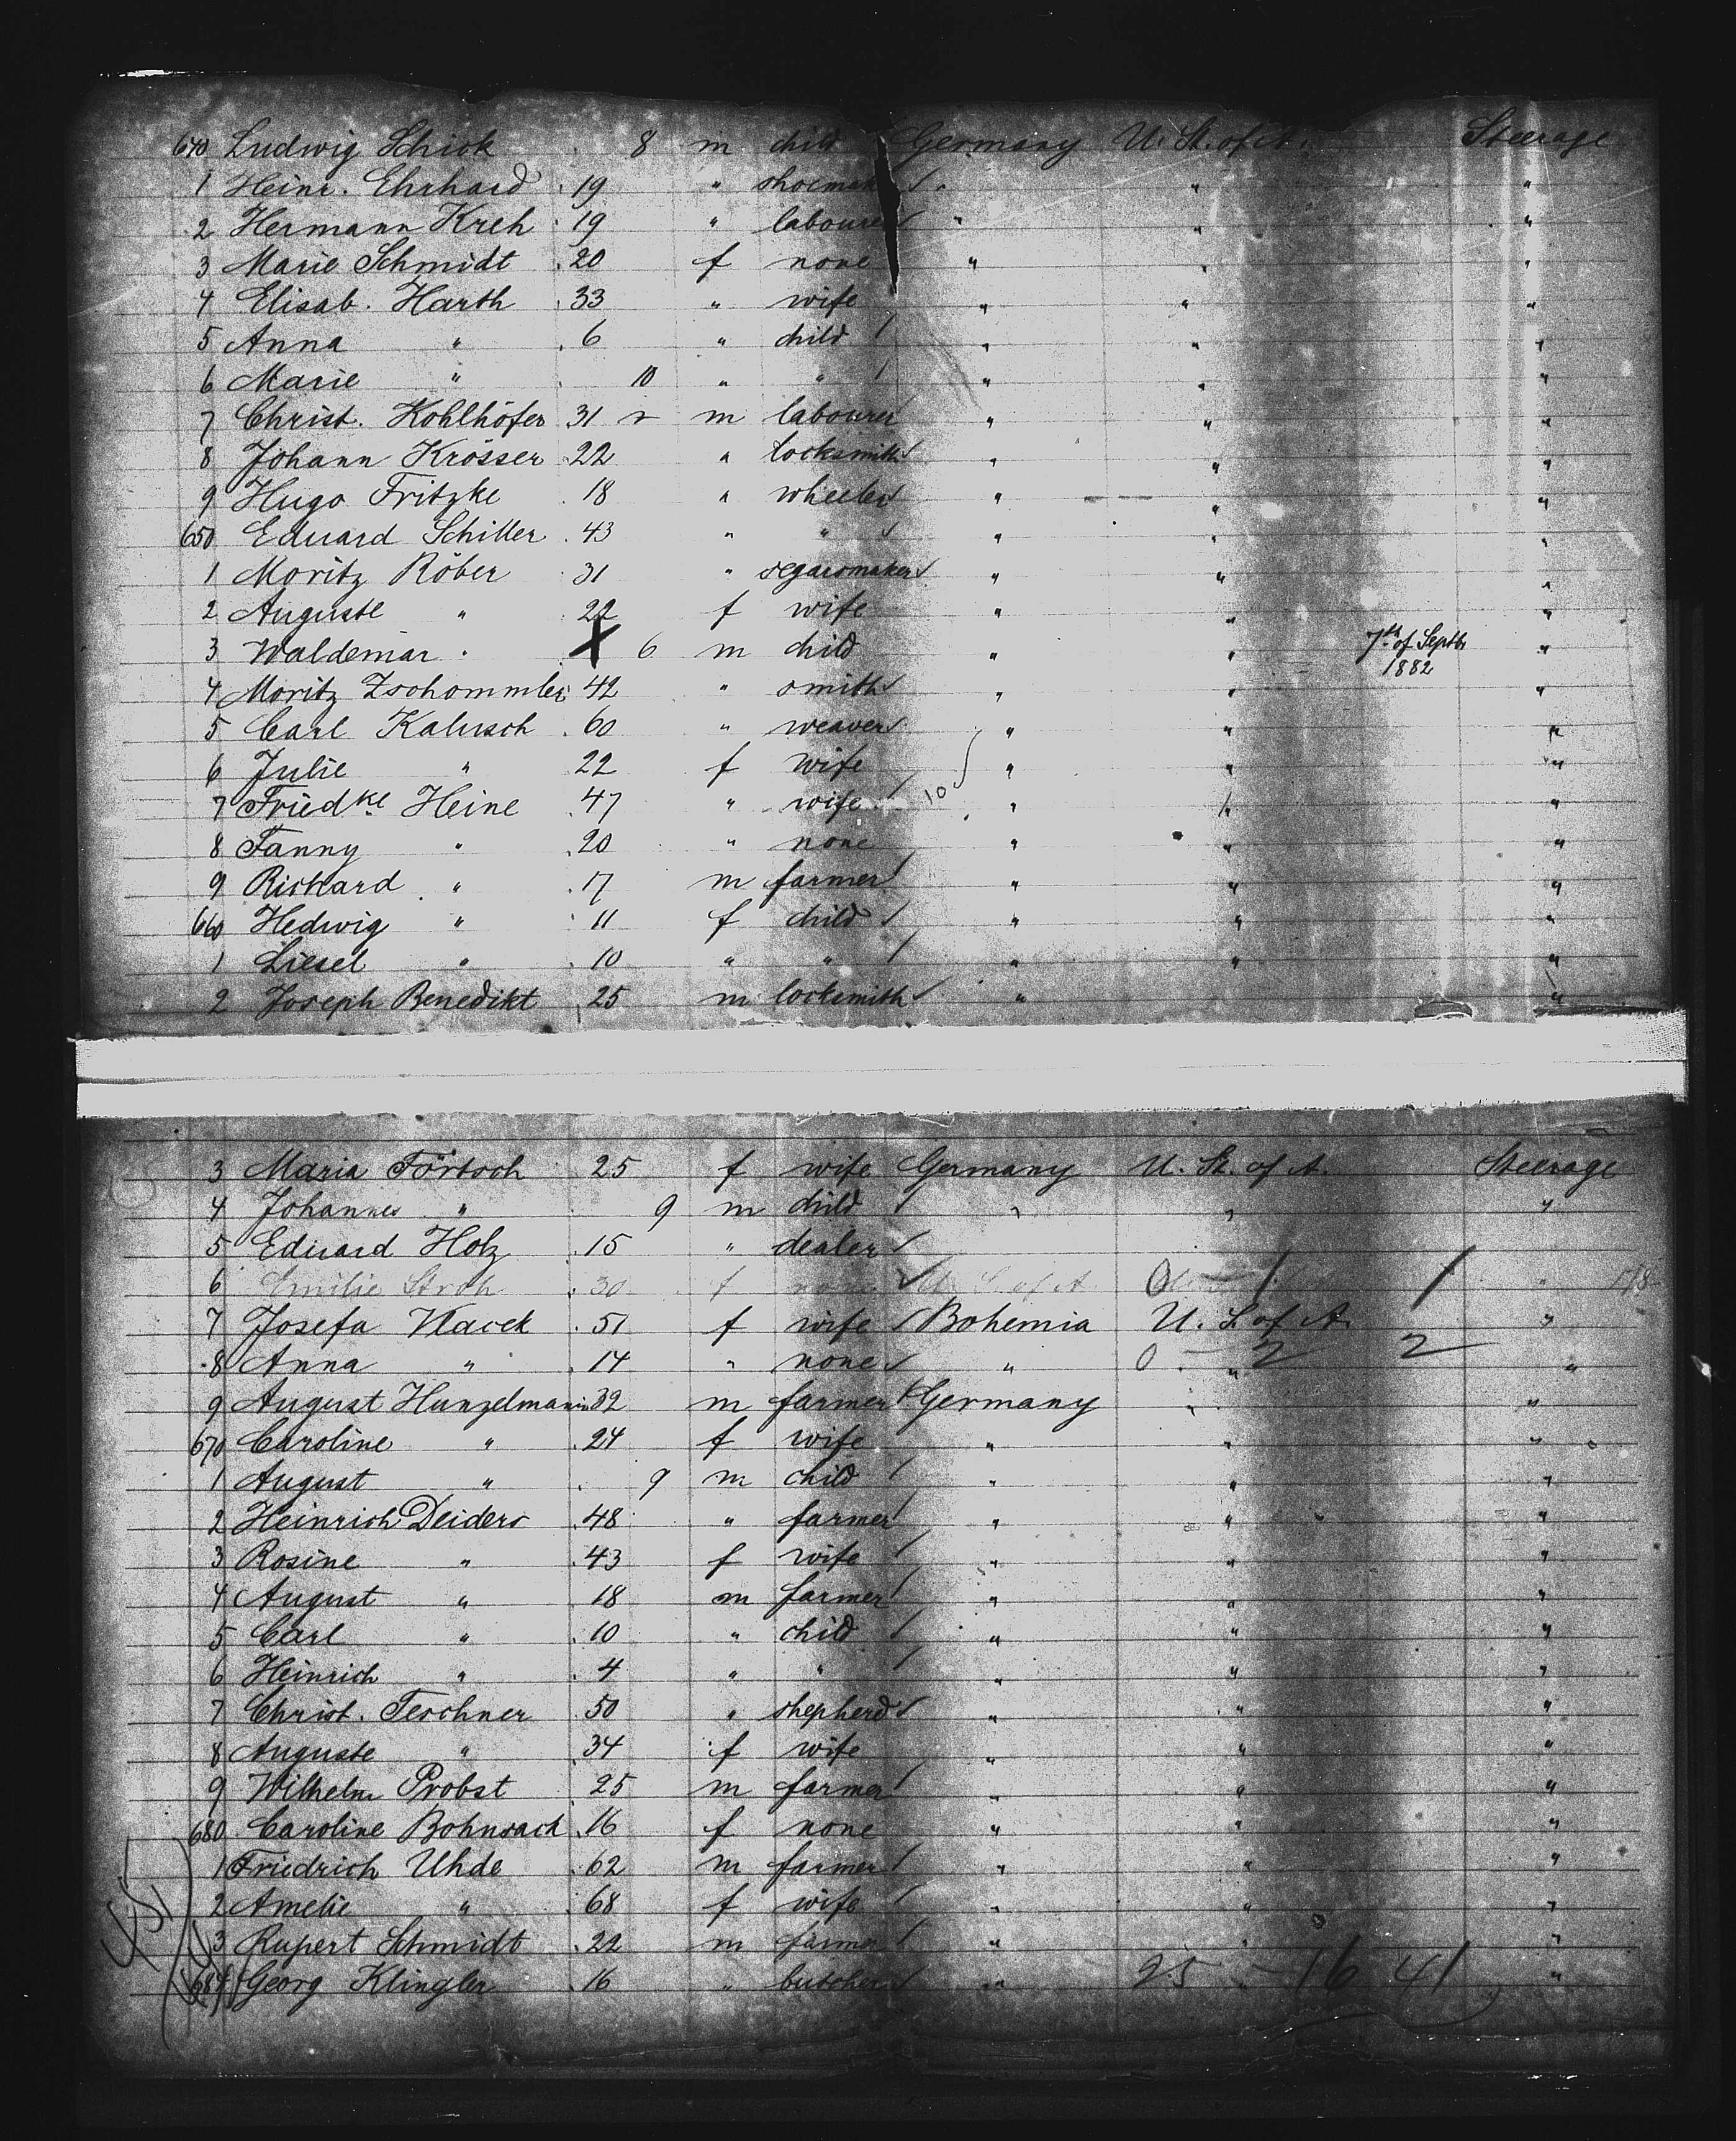 640 Ludwig Schick 8 m child Germany U. St. of A. Steerage
1 Heinr. Ehrhard 19 " shoemak " " "
2 Hermann Kreh 19 " labourer " " "
3 Marie Schmidt 20 f none " " "
4 Elisab. Harth 33 " wife " " "
5 Anna " 6 " child " " "
6 Marie " 10 " " " " "
7 Christ. Kohlhöfer 31 m labourer " " "
8 Johann Krösser 22 " locksmith " " "
9 Hugo Fritzke 18 " wheeler " " "
650 Eduard Schiller 43 " " " " "
1 Moritz Röber 31 " segarsmaker " " "
2 Auguste " 22 f wife " " "
3 Waldemar " X 6 m child " " 7th of Septbr 1882 "
4 Moritz Zschommler 42 " smith " " "
5 Carl Kalusch 60 " weaver " " "
6 Julie " 22 f wife " " "
7 Friedke Heine 47 " wife 10 " " "
8 Fanny " 20 " none " " "
9 Richard " 17 m farmer " " "
660 Hedwig " 11 f child " " "
1 Liesel " 10 " " " " "
2 Joseph Benedikt 25 m locksmith " "
3 Maria Förtsch 25 f wife Germany U. St. of A. Steerage
4 Johannes " 9 m child " " "
5 Eduard Holz 15 " dealer
6 Emilie Stroh 30 f none U. S. of A. 0 - 1 1 "
7 Josefa Vlacek 51 f wife Bohemia U. S. of A. "
8 Anna " 14 " none " 0 - 2 2 "
9 August Hunzelmann 32 m farmer Germany " "
670 Caroline " 24 f wife " " "
1 August " 9 m child " " "
2 Heinrich Deiders 48 " farmer " " "
3 Rosine " 43 f wife " " "
4 August " 18 m farmer " " "
5 Carl " 10 " child " " "
6 Heinrich " 4 " " " " "
7 Christ. Teschner 50 " shepherd " " "
8 Auguste " 34 f wife " " "
9 Wilhelm Probst 25 m farmer " " "
680 Caroline Bohnsack 16 f none " " "
1 Friedrich Uhde 62 m farmer " " "
2 Amelie " 68 f wife " " "
3 Rupert Schmidt 22 m farmer " " "
684 Georg Klingler 16 " butcher " 25 - 16 41 "